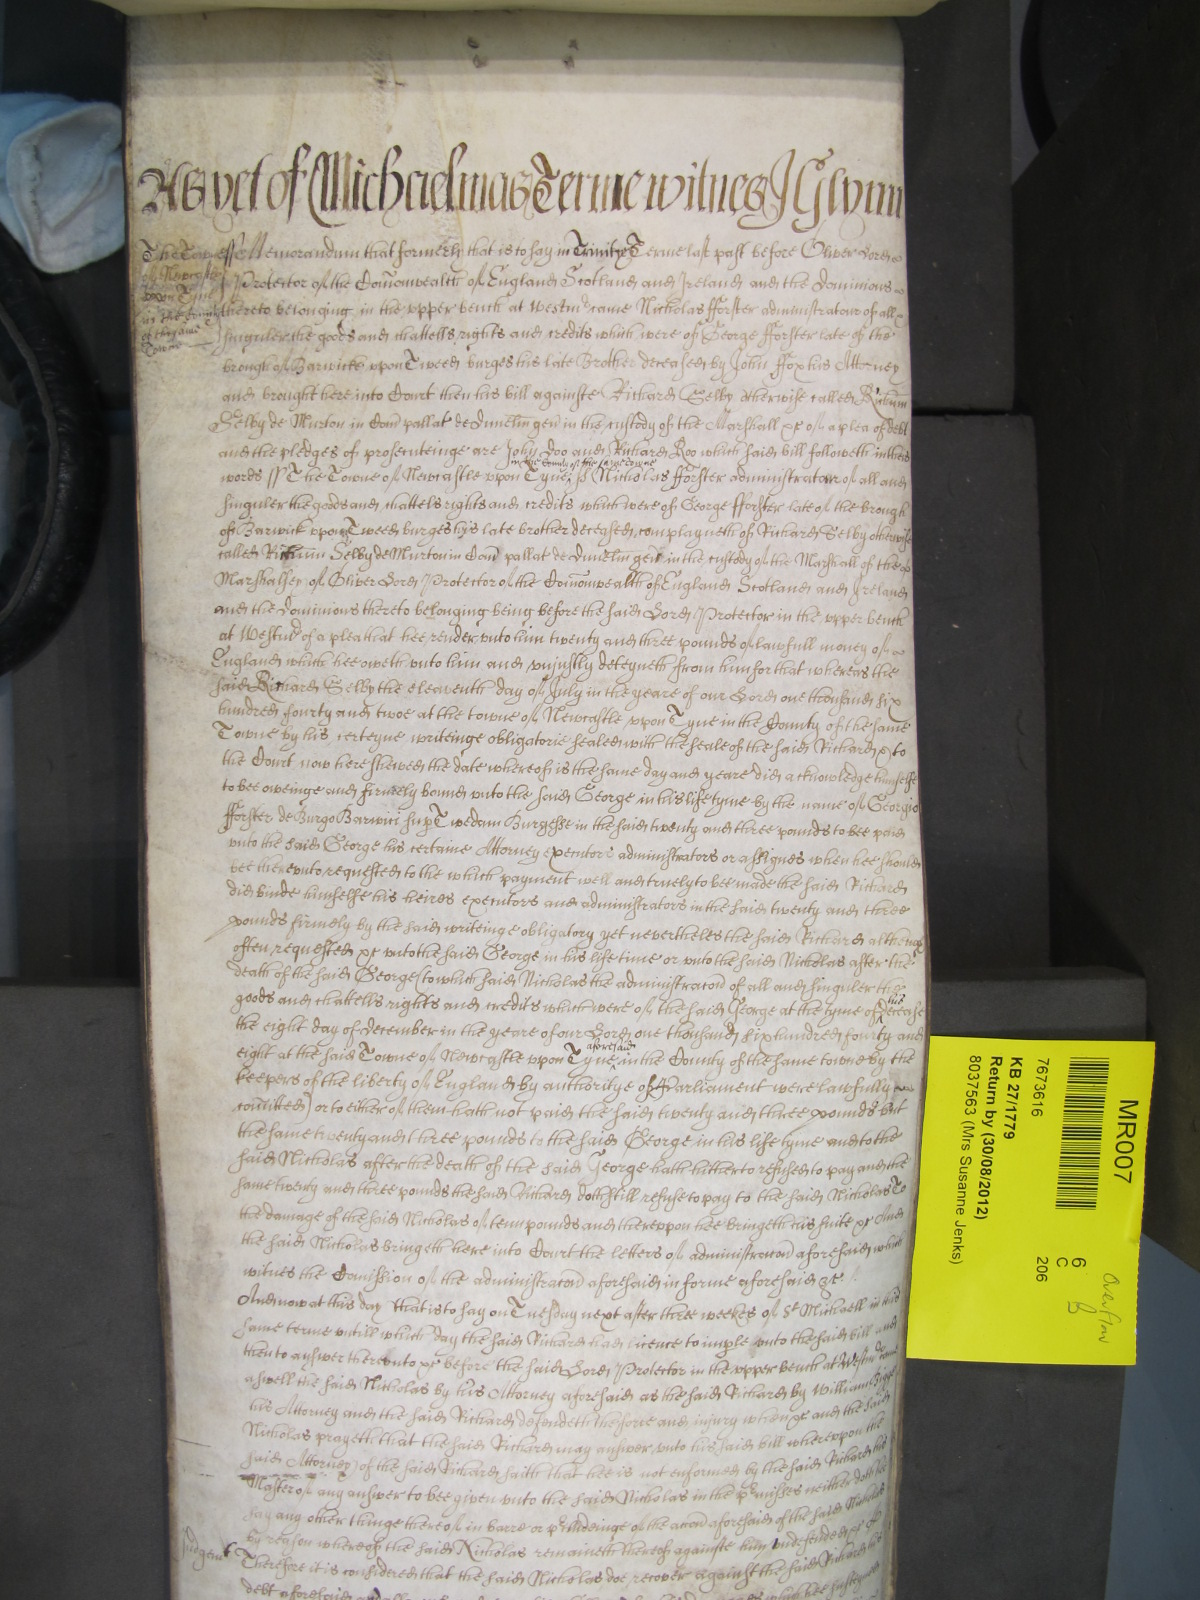 As yet of Michaelmas Terme witnes J Glynn
The Towne
of Newcastle
upon Tyne
in the County
of the same
Towne
ss Memorandum that formerly that is to say in Trinity Terme last past before Oliver Lord
Protector of the Comonwealth of England Scotland and Ireland and the Dominions
thereto belonging in the upper bench at Westmr came Nicholas fforster administrator of all
singuler the goods and chattells rights and credits which were of George fforster late of the
brough of Barwicke upon Tweed burges his late Brother deceased by John ffox his Attorney
and brought here into Court then his bill againste Richard Selby otherwise called Ricum
Selby de Murton in Com pallat de Dunelm gen in the custody of the Marshall &c of a plea of debt
and the pledges of prosecuteinge are John Doo and Richard Roo which said bill followeth in theis
in the County of the same towne
words ss The Towne of Newcastle upon Tyne ss Nicholas fforster administrator of all and
singuler the goods and chattels rights and credits which were of George fforster late of the brough
of Barwick upon Tweed burges his late brother deceased complayneth of Richard Selby otherwise
called Ricum Selby de Murton in Com pallat de Dunelm gen in the custody of the Marshall of the
Marshalsey of Oliver Lord Protector of the Comonwealth of England Scotland and Ireland
and the Dominions thereto belonging being before the said Lord Protector in the upper bench
at Westmr of a plea that hee render unto him twenty and three pounds of lawfull money of
England which hee oweth unto him and unjustly deteyneth from him for that whereas the
said Richard Selby the eleaventh day of July in the yeare of our Lord one thousand six
hundred fourty and twoe at the towne of Newcastle upon Tyne in the County of the same
Towne by his certeyne writeinge obligatorie sealed with the seale of the said Richard & to
the Court now here shewed the date whereof is the same day and yeare did acknowledge himselfe
to bee oweinge and firmely bound unto the said George in his life tyme by the name of Georgio
fforster de Burgo Barwici sup Twedam Burgesse in the said twenty and three pounds to bee paid
unto the said George his certaine Attorney executors administrators or assignes when hee should
bee thereunto requested to the which payment well and truely to bee made the said Richard
did binde himselfe his heires executors and administrators in the said twenty and three
pounds firmely by the said writeinge obligatory yet nevertheles the said Richard although
often requested &c unto the said George in his life time or unto the said Nicholas after the
death of the said George (to which said Nicholas the administracon of all and singuler the
his
goods and chattells rights and credits which were of the said George at the tyme of decease
the eight day of December in the yeare of our Lord one thousand six hundred fourty and
aforesaid
eight at the said Towne of Newcastle upon Tyne in the County of the same towne by the
keepers of the liberty of England by authoritye of Parliament were lawfully
comitted) or to either of them hath not paid the said twenty and three pounds but
the same twenty and three pounds to the said George in his life tyme and to the
said Nicholas after the death of the said George hath hitherto refused to pay and the
same twenty and three pounds the said Richard doth still refuse to pay to the said Nicholas To
the damage of the said Nicholas of tenn pounds and thereupon hee bringeth his suite &c And
the said Nicholas bringeth here into Court the letters of administracon aforesaid which
witnes the Comission of the administracon aforesaid in forme aforesaid &c
And now at this day that is to say on Tuesday next after three weekes of St Michaell in this
same terme untill which day the said Richard had licence to imple unto the said bill and
then to answer thereunto &c before the said Lord Protector in the upper bench at Westmr came
aswell the said Nicholas by his Attorney aforesaid as the said Richard by William
his Attorney and the said Richard defendeth the force and injury when &c and the said
Nicholas prayeth that the said Richard may answer unto his said bill whereupon the
said Attorney of the said Richard saith that hee is not enformed by the said Richard his
Master of any answer to bee given unto the said Nicholas in the p'misses neither doth hee
say any other thinge thereof in barre or p'cludeinge of the accon aforesaid of the said Nicholas
by reason whereof the said Nicholas remaineth thereof againste him undefended &c
Judgent
Therefore it is considered that the said Nicholas doe recover against the said Richard his
debt aforesaid
MR007
6
C
206
7673616
KB 27/1779
Return by (30/08/2012)
8037563 (Mrs Susanne Jenks)
Overflow
B